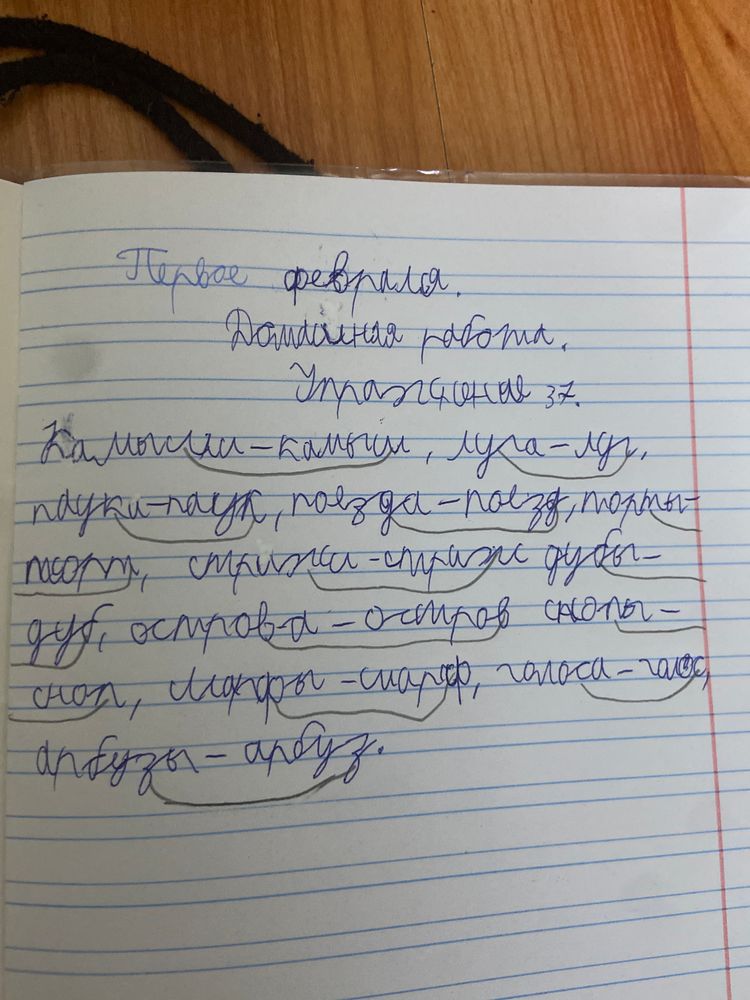 Первое февраля.
Домашняя работа.
Упражнение 37.
Камыши - камыш, луга - луг,
пауки - паук, поезда - поезд, торты -
торт, стрижи - стриж дубы -
дуб, острова - остров снопы -
сноп, шарфы - шарф, голоса - голос,
арбузы - арбуз.